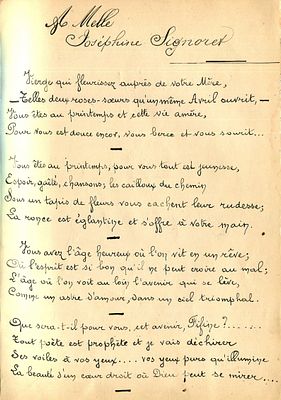 A Melle
Joséphine Signoret
Vierge qui fleurissez auprès de votre Mère,
– Telles deux roses-sœurs qu'un même Avril ouvrit, –
Vous êtes au printemps et cette vie amère,
Pour vous est douce encor, vous berce et vous sourit...
Vous êtes au printemps; pour vous tout est jeunesse,
Espoir, gaîté, chansons; les cailloux du chemin
Sous un tapis de fleurs vous cachent leur rudesse;
La ronce est églantine et s'offre à votre main.
Vous avez l'âge heureux où l'on vit en un rêve;
Où l'esprit est si bon qu'il ne peut croire au mal;
L'âge où l'on voit au loin l'avenir qui se lève,
Comme un astre d'amour, dans un ciel triomphal.
Que sera-t-il pour vous, cet avenir, Fifine?.......
Tout poète est prophète et je vais déchirer
Ses voiles à vos yeux.... vos yeux purs qu'illumine
La beauté d'un cœur droit où Dieu peut se mirer....